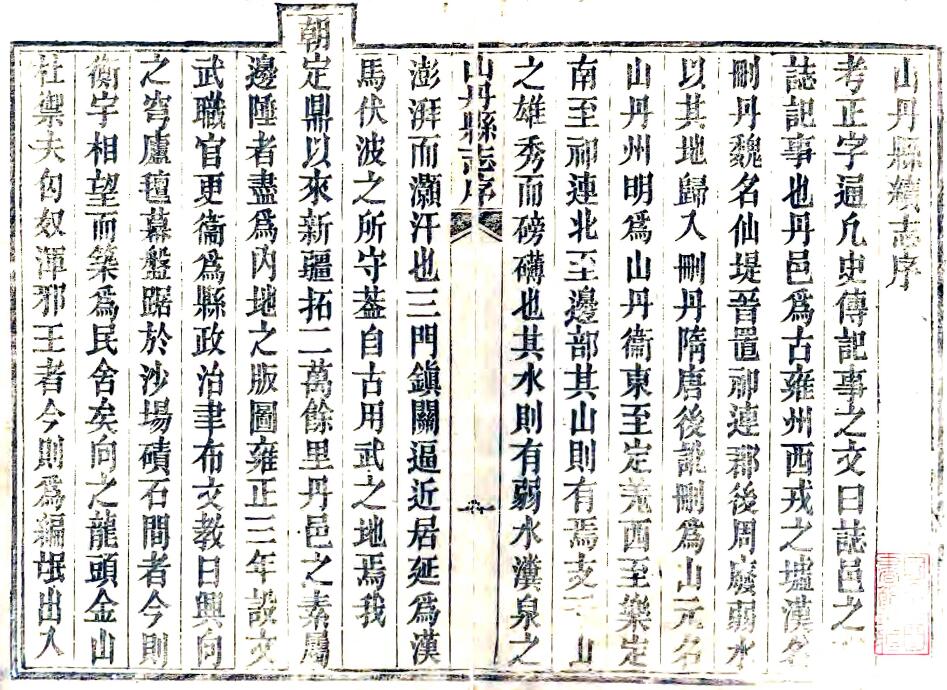 山丹縣續志序
考正字通凡史傳記事之文曰誌邑之
誌記事也丹邑爲古雍州西戎之墟漢名
刪丹魏名仙堤晉置祁連郡後周廢弱水
以其地歸入刪丹隋唐後訛刪爲山元名
山丹州明爲山丹衞東至定羌西至樂定
南至祁連北至邊部其山則有焉支 山
之雄秀而磅礴也其水則有弱水瀵泉之
山丹縣志序
澎湃而灝汗也三門鎮關逼近居延爲漢
馬伏波之所守葢自古用武之地焉我
朝定鼎以來新疆拓二萬餘里丹邑之素屬
邊陲者盡爲內地之版圖雍正三年設文
武職官更衞爲縣政治聿布文教日興向
之穹廬氊幕盤踞於沙場磧石間者今則
衡宇相望而築爲民舍矣向之龍頭金山
杜禦夫匈奴渾邪王者今則爲編氓出入